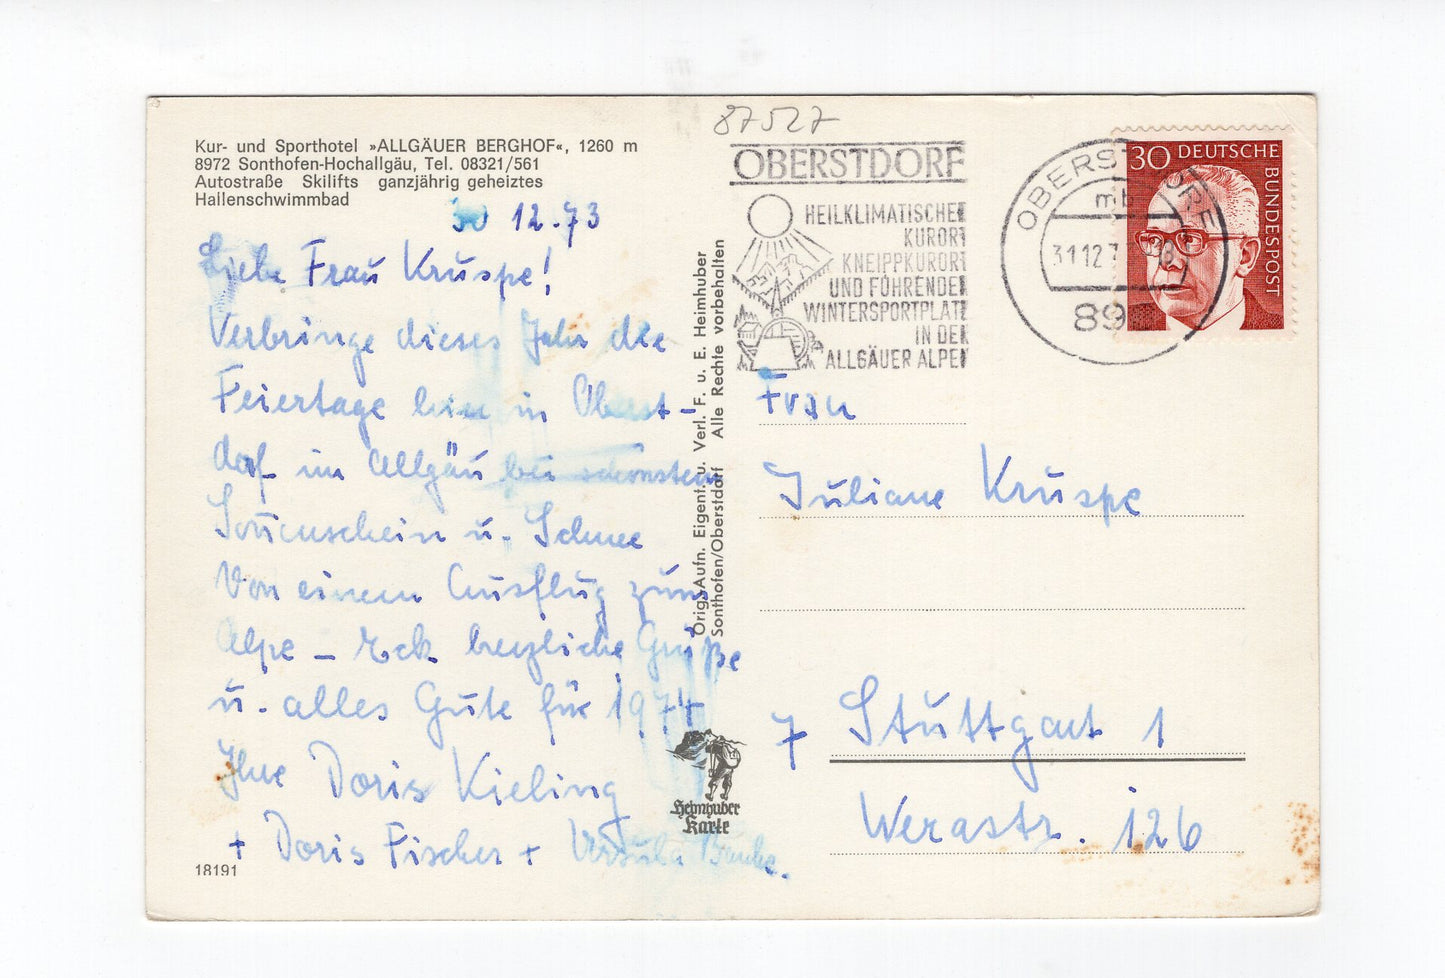 87527
Kur- und Sporthotel »ALLGÄUER BERGHOF«, 1260 m
8972 Sonthofen-Hochallgäu, Tel. 08321/561
Autostraße Skilifts ganzjährig geheiztes
Hallenschwimmbad
30 12.73
Liebe Frau Kruspe!
Verbringe dieses Jahr die
Feiertage hier in Oberst-
dorf im Allgäu bei schönstem
Sonnenschein u. Schnee
Von einem Ausflug zum
Alpe - Eck herzliche Grüße
u. alles Gute für 1974
Ihre Doris Kieling
+ Doris Fischer + Ursula
18191
Orig.-Aufn. Eigent. u. Verl. F. u. E. Heimhuber
Sonthofen/Oberstdorf Alle Rechte vorbehalten
Heimhuber
Karte
OBERSTDORF
HEILKLIMATISCHER
KURORT
KNEIPPKURORT
UND FÜHRENDER
WINTERSPORTPLATZ
IN DEN
ALLGÄUER ALPEN
OBERSTDORF
mb
31.12.7
89
30 DEUTSCHE
BUNDESPOST
Frau
Juliane Kruspe
7 Stuttgart 1
Werastr. 126